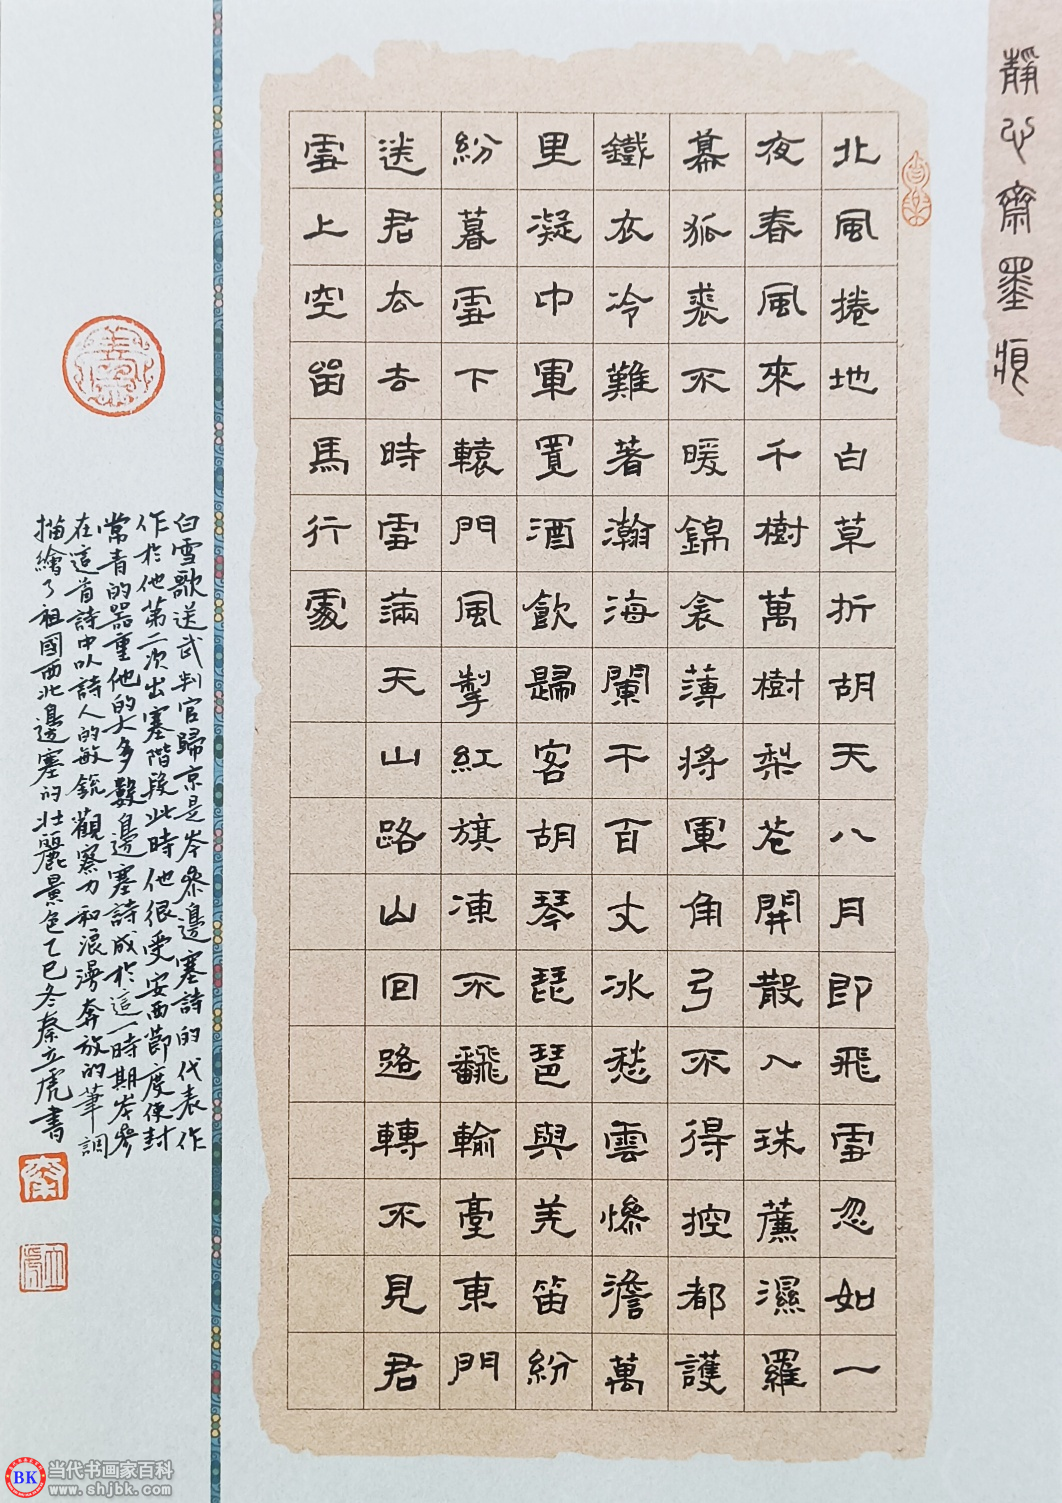 靜心齋墨痕
北風捲地白草折胡天八月即飛雪忽如一
夜春風來千樹萬樹梨花開散入珠簾濕羅
幕狐裘不暖錦衾薄將軍角弓不得控都護
鐵衣冷難著瀚海闌干百丈冰愁雲慘澹萬
里凝中軍置酒飲歸客胡琴琵琶與羌笛紛
紛暮雪下轅門風掣紅旗凍不飜輪臺東門
送君去去時雪滿天山路山回路轉不見君
雪上空留馬行處
白雪歌送武判官歸京是岑參邊塞詩的代表作
作於他第二次出塞階段此時他很受安西節度使封
常青的器重他的大多數邊塞詩成於這一時期岑參
在這首詩中以詩人的敏銳觀察力和浪漫奔放的筆調
描繪了祖國西北邊塞的壯麗景色乙巳冬秦立虎書
BK 当代书画家百科
www.shjbk.com